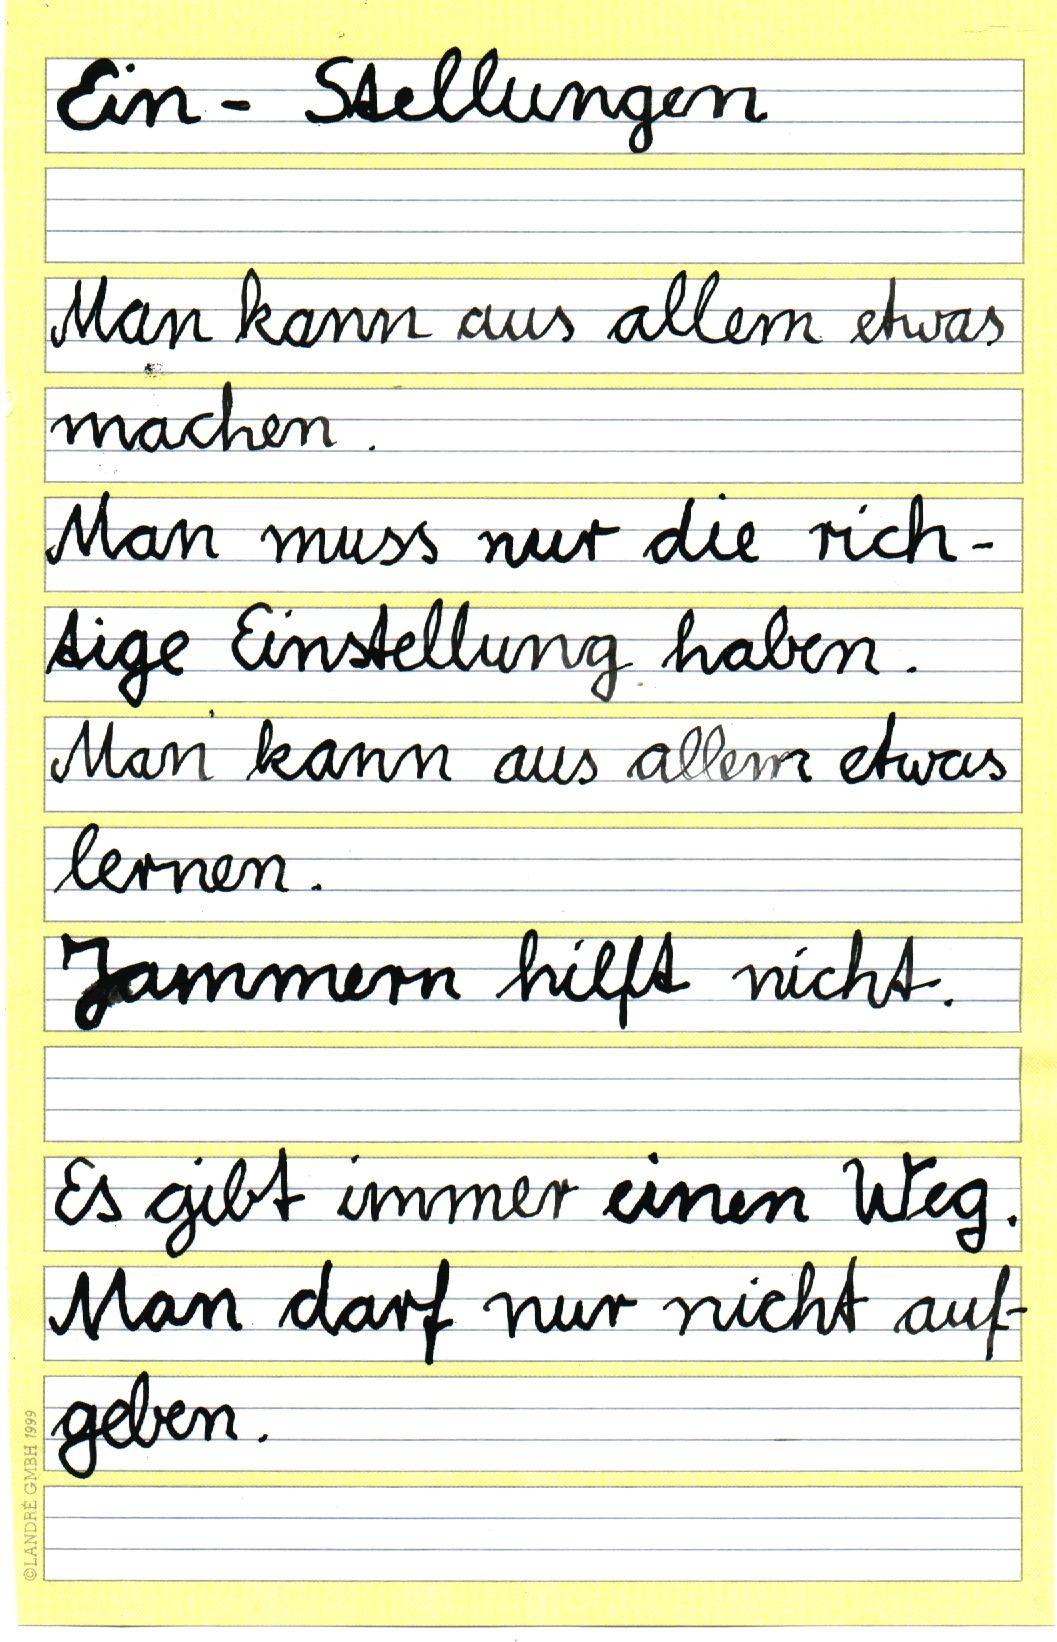 Ein - Stellungen
Man kann aus allem etwas
machen.
Man muss nur die rich-
tige Einstellung haben.
Man kann aus allem etwas
lernen.
Jammern hilft nicht.
Es gibt immer einen Weg.
Man darf nur nicht auf-
geben.
©LANDRÉ GMBH 1999